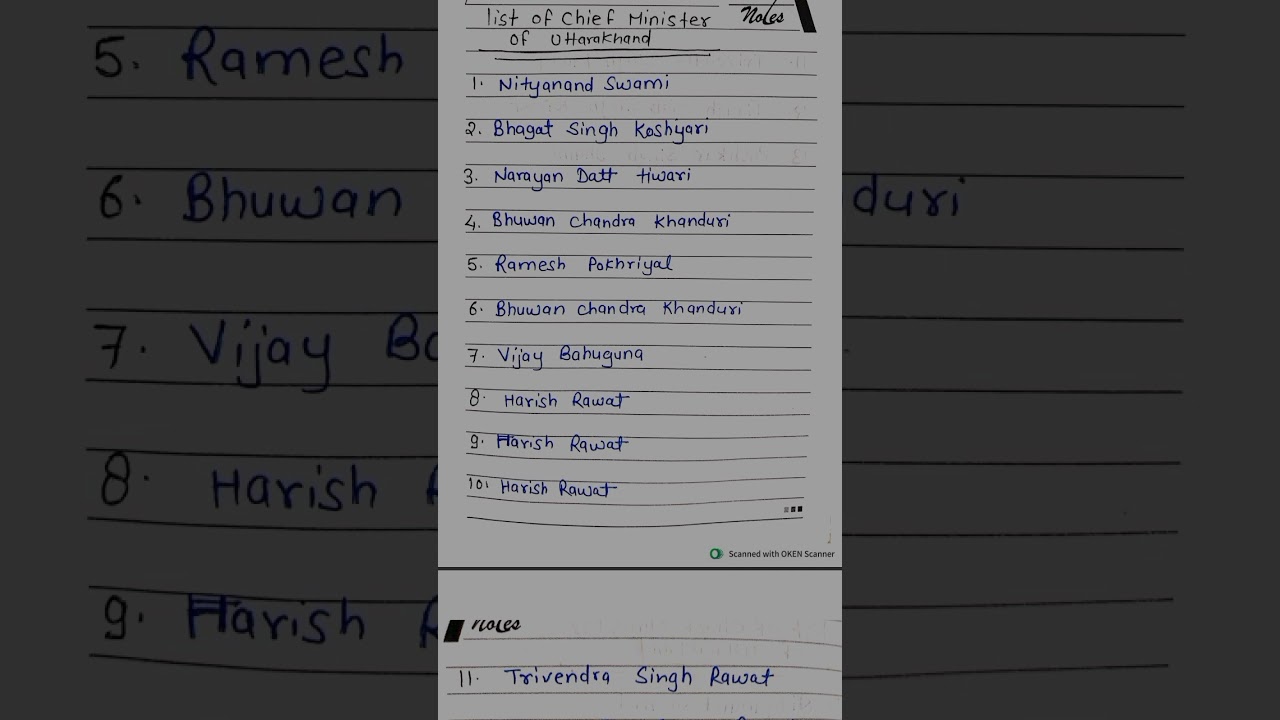 list of Chief Minister
Notes
of Uttarakhand
1. Nityanand Swami
2. Bhagat Singh Koshyari
3. Narayan Datt tiwari
4. Bhuwan Chandra Khanduri
5. Ramesh Pokhriyal
6. Bhuwan chandra Khanduri
7. Vijay Bahuguna
8. Harish Rawat
9. Harish Rawat
10. Harish Rawat
Scanned with OKEN Scanner
Notes
11. Trivendra Singh Rawat
5. Ramesh
6. Bhuwan
duri
7. Vijay Ba
8. Harish R
9. Harish R